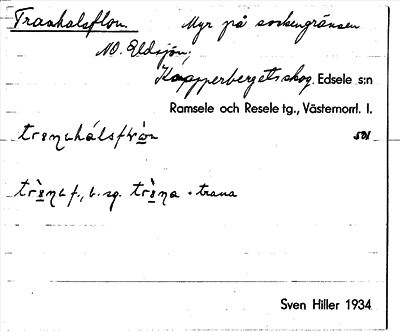 Tranhalsflon. Myr på sockengränsen
NO. Eldsjön;
Kopperbergets skog. Edsele s:n
Ramsele och Resele tg., Västernorrl. l.
501
b. sg. = trana
Sven Hiller 1934